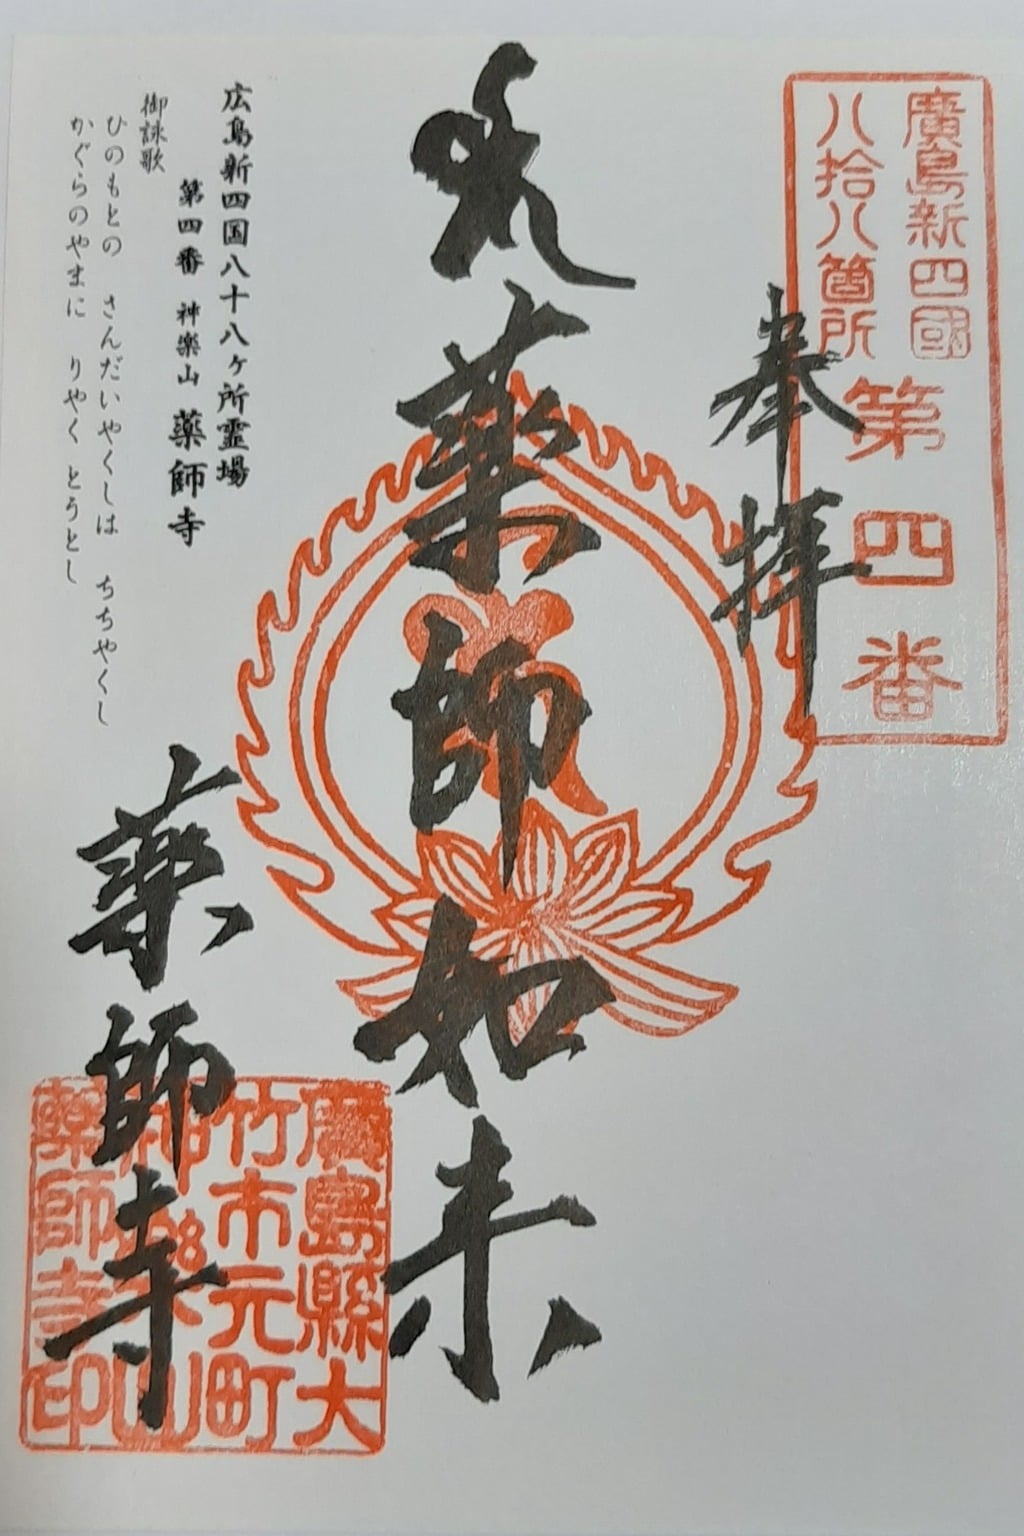 廣島新四國
八拾八箇所
第四番
奉拝
薬師如来
広島新四国八十八ヶ所霊場
第四番 神楽山 薬師寺
御詠歌
ひのもとの さんだいやくしは ちちやくし
かぐらのやまに りやくとうとし
薬師寺
廣島縣大
竹市元町
神樂山
藥師寺印